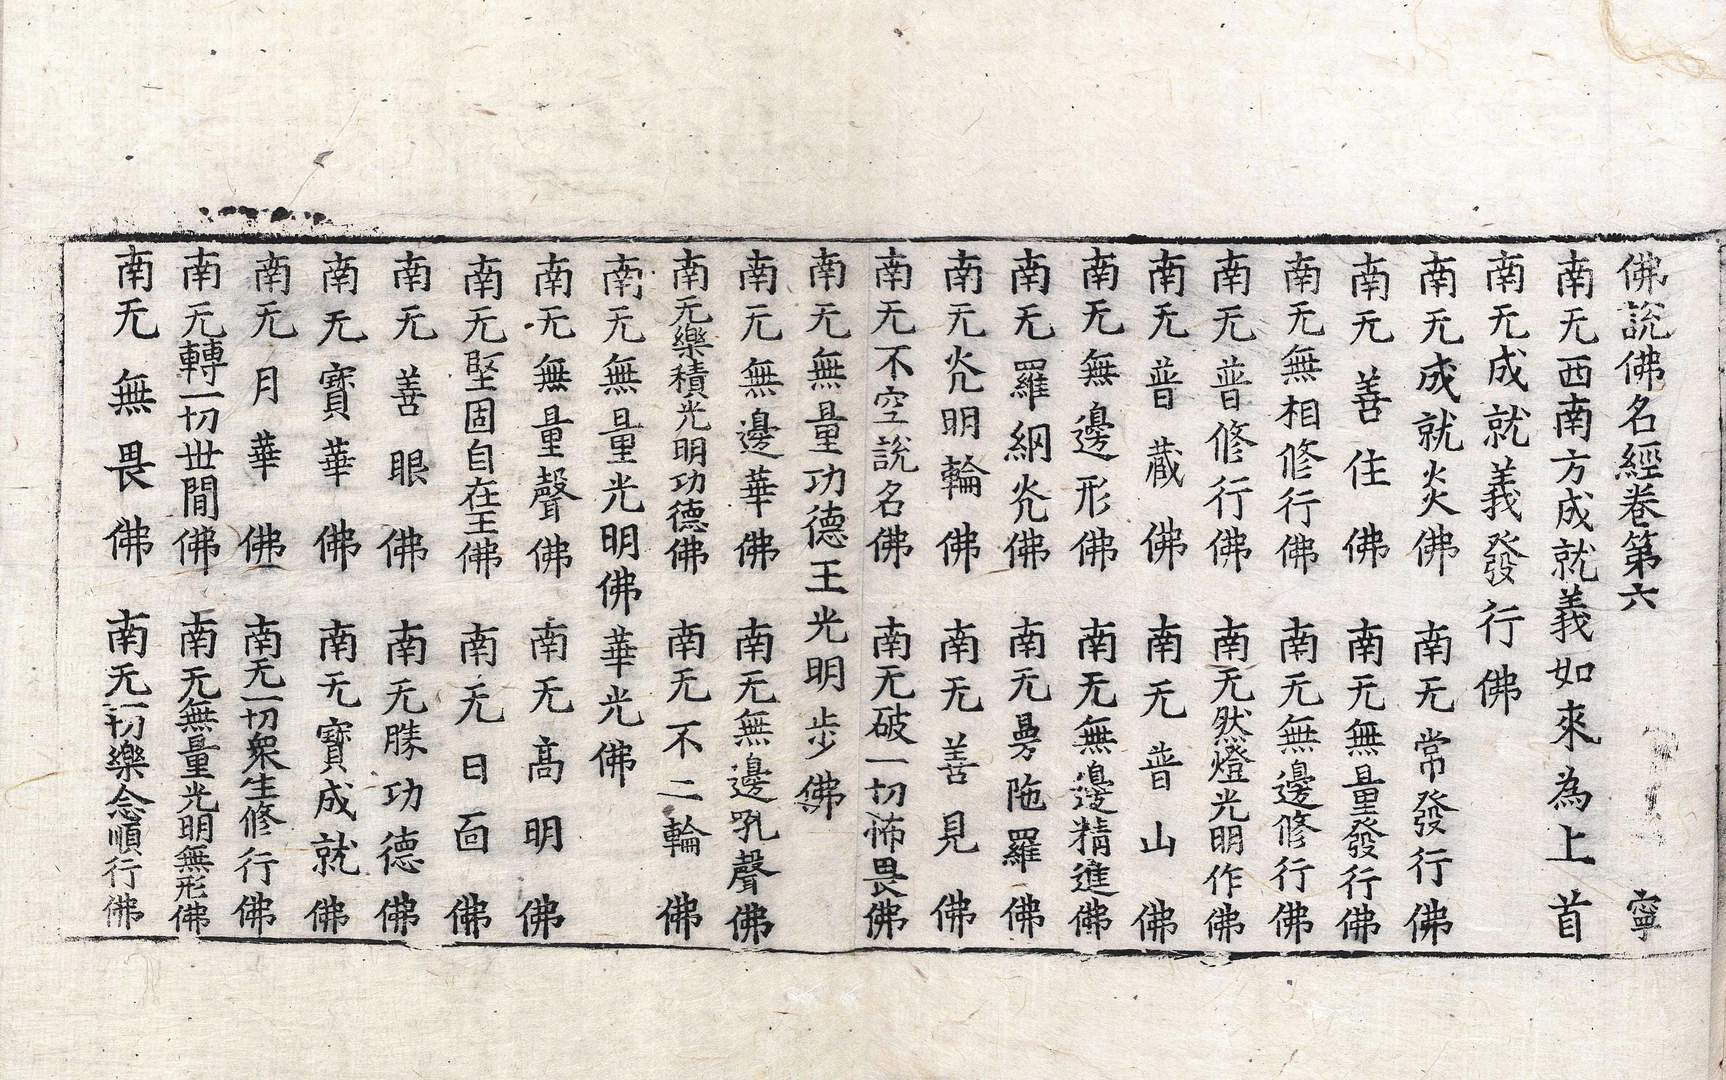 佛說佛名經卷第六 寧
南无西南方成就義如來為上首
南无成就義發行佛
南无成就炎佛 南无常發行佛
南无善住佛 南无無量發行佛
南无無相修行佛 南无無邊修行佛
南无普修行佛 南无然燈光明作佛
南无普藏佛 南无普山佛
南无無邊形佛 南无無邊精進佛
南无羅網灮佛 南无曼陁羅佛
南无灮明輪佛 南无善見佛
南无不空說名佛 南无破一切怖畏佛
南无無量功德王光明步佛
南无無邊華佛 南无無邊吼聲佛
南无樂積光明功德佛 南无不二輪佛
南无無量光明佛 華光佛
南无無量聲佛 南无高明佛
南无堅固自在王佛 南无日面佛
南无善眼佛 南无勝功德佛
南无寶華佛 南无寶成就佛
南无月華佛 南无一切衆生修行佛
南无轉一切世間佛 南无無量光明無形佛
南无無畏佛 南无一切樂念順行佛